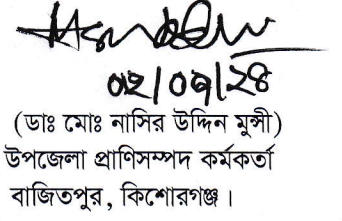 ০২/০৭/২৪
(ডাঃ মোঃ নাসির উদ্দিন মুন্সী)
উপজেলা প্রাণিসম্পদ কর্মকর্তা
বাজিতপুর, কিশোরগঞ্জ।